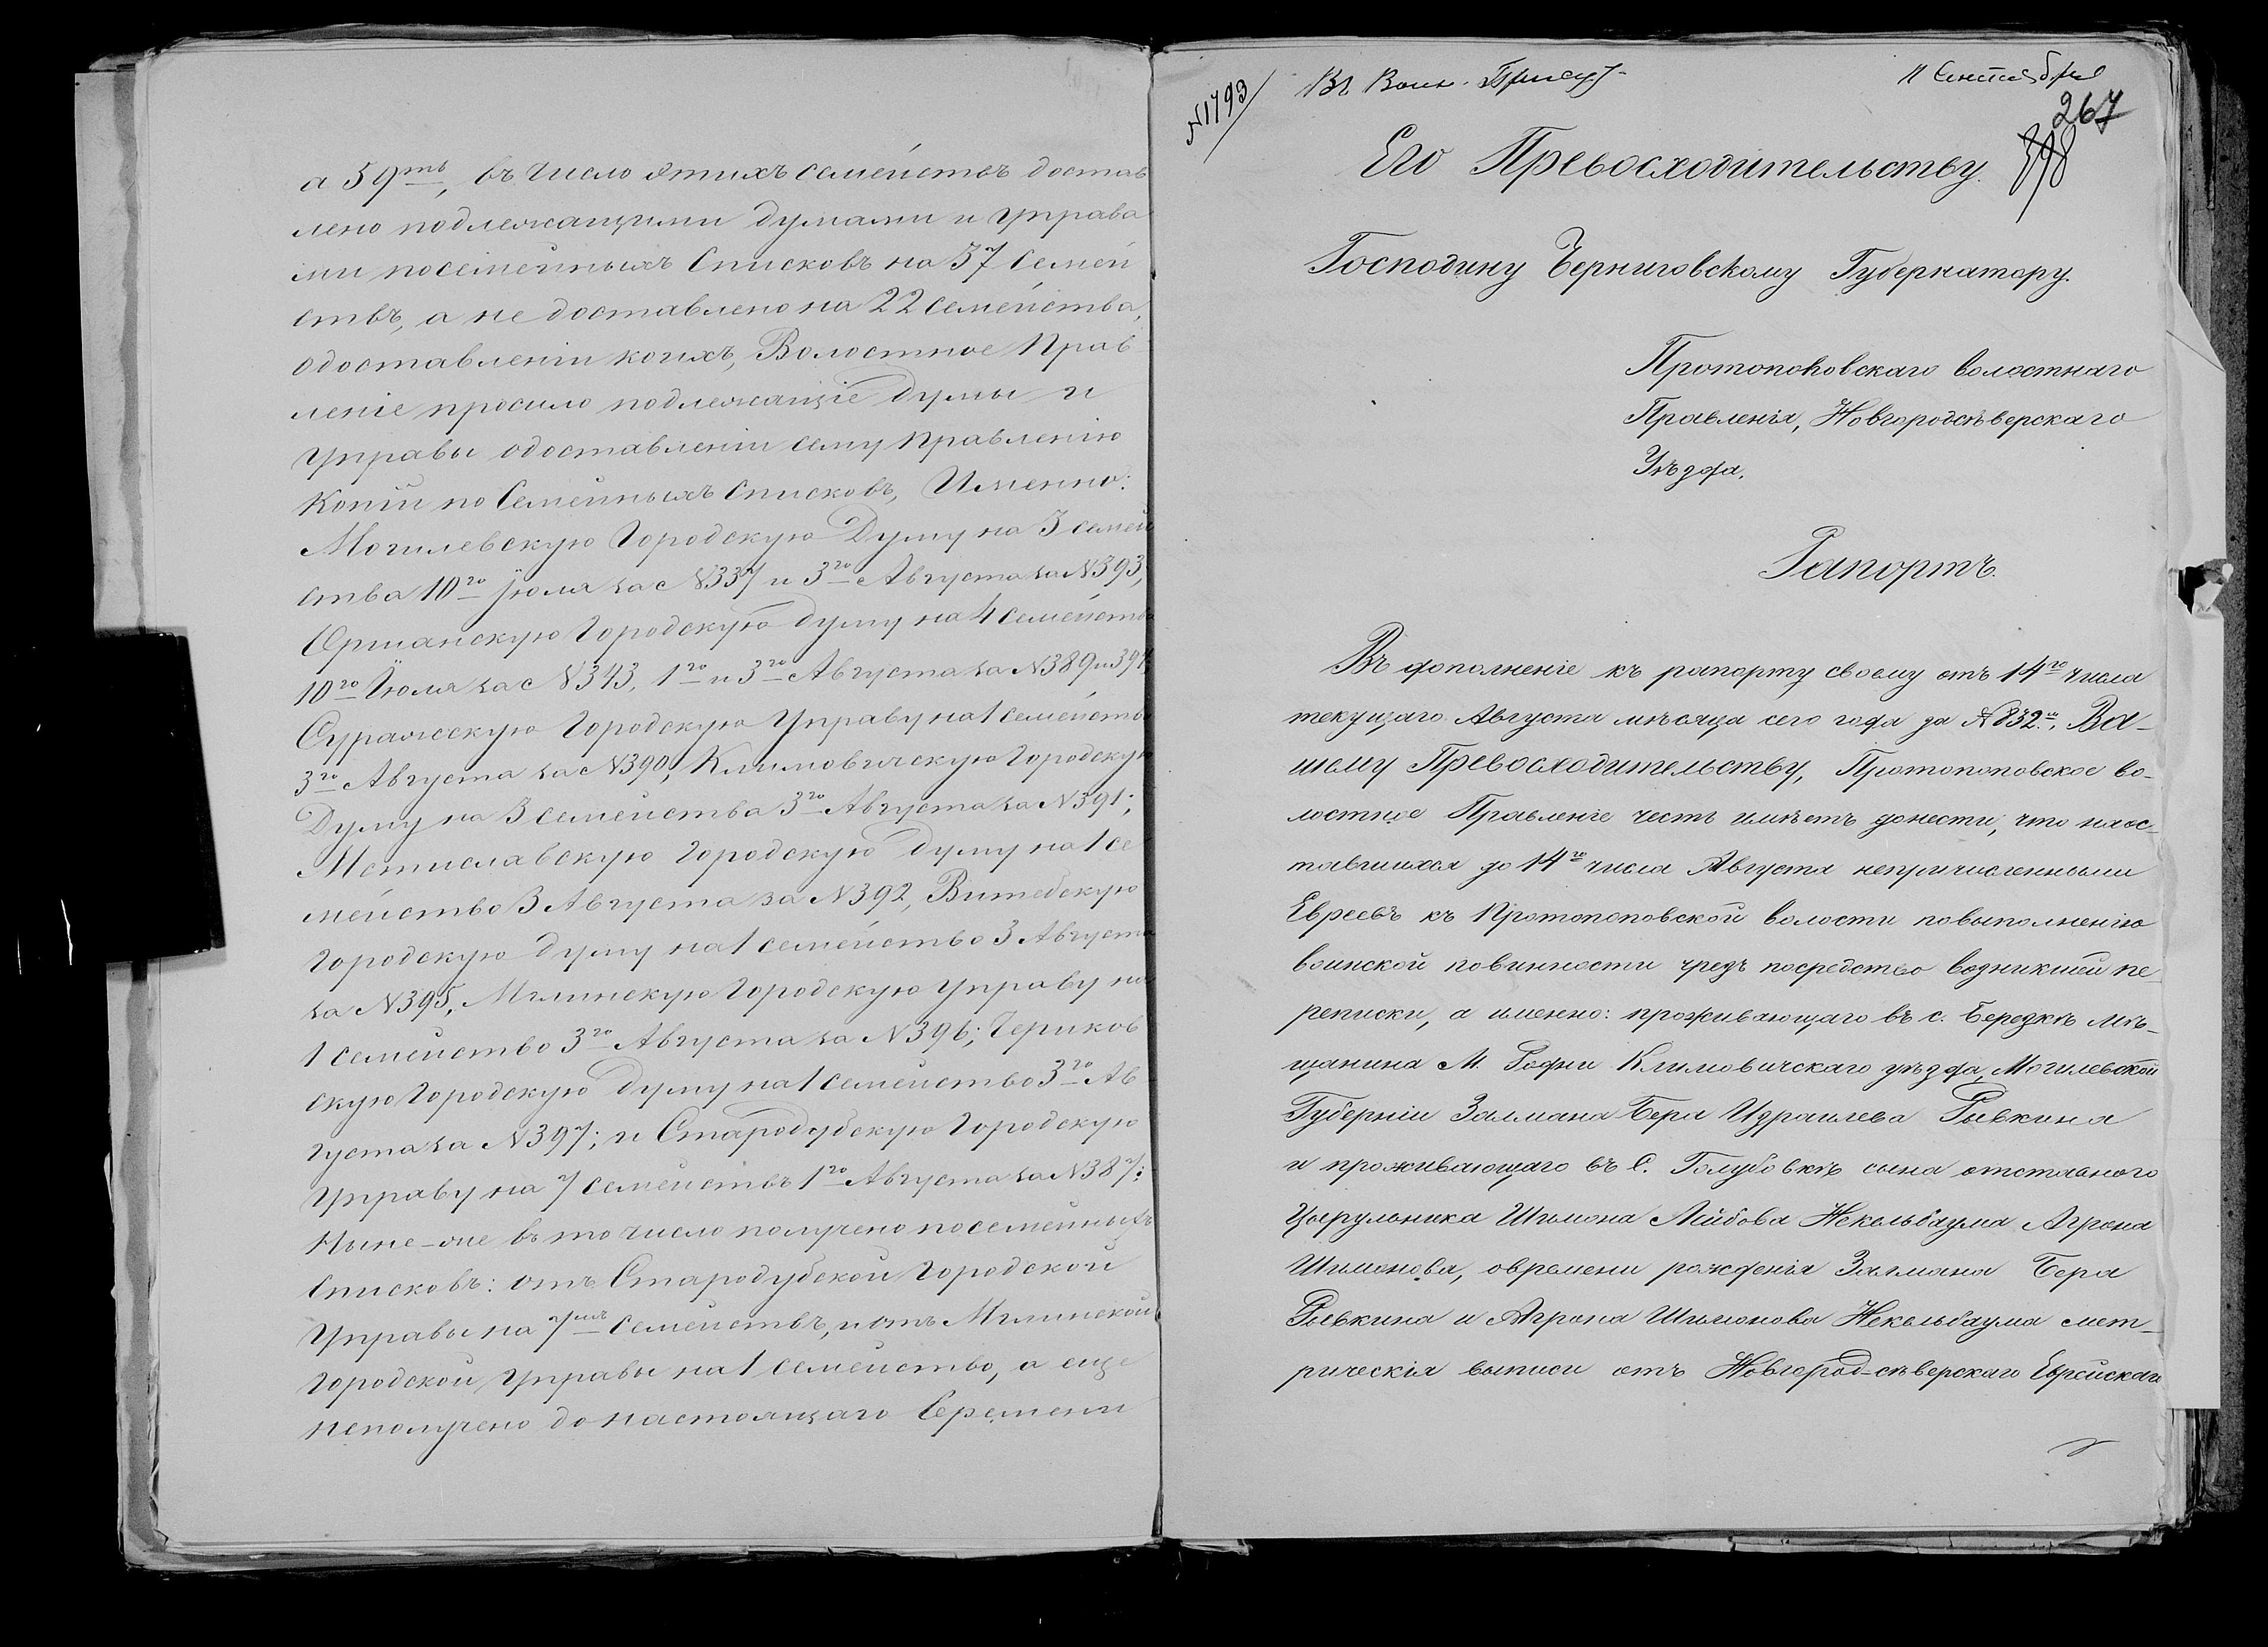 а 59ть, въ число этихъ семействъ достав
лено подлежащими думами и управа
ми посемейныхъ списковъ на 37 семей
ствъ, а не доставлено на 22 семейства,
одоставленіи коихъ, Волостное Прав
леніе просило подлежащіе Думы и
управы одоставленіи сему правленію
Копіи по Семейныхъ списковъ, Именно:
Могилевскую Городскую Думу на 3 семей
ства 10го Іюля за с №337 и 3го Августа за №393,
Оршанскую Городскую думу на 4 семейства
10го Іюля за с №343, 1го и 3го Августа за №389 и 394
Суражскую Городскую Управу на 1 семейство
3го Августа за №390, Климовичскую Городскую
Думу на 3 семейства 3го Августа за №391;
Мстиславскую Городскую Думу на 1 се
мейство 3 Августа за №392, Витебскую
городскую думу на 1 семейство 3 Августа
за №395, Мглинскую Городскую управу на
1 семейство 3го Августа за №396; Чериков
скую Городскую Думу на 1 семейство 3го Ав
густа за №397; и Стародубскую Городскую
управу на 7 семействъ 1го Августа за №387:
Ныне-же въ то число получено посемейныхъ
списковъ: отъ Стародубской Городской
Управы на 7мъ семействъ, и отъ Мглинской
городской управы на 1 семейство, а еще
неполучено до настоящаго времени
№1793
Въ Воин. Присут.
11 Сентября
267
Его Превосходительству.
Господину Черниговскому Губернатору.
Протопоповскаго волостнаго
Правленія, Новгородсѣверскаго
Уѣзда,
Рапортъ.
Въ дополненіе къ рапорту своему отъ 14го числа
текущаго Августа мѣсяца сего года за №832й, Ва-
шему Превосходительству, Протопоповское во-
лостное Правленіе честь имѣетъ донести, что наос-
тавшихся до 14го числа Августа непричисленными
Евреевъ къ Протопоповской волости повыполненію
воинской повинности чрезъ посредство возникшей пе-
реписки, а именно: проживающаго въ с. Березкѣ мѣ-
щанина М. Родни Климовичскаго уѣзда, Могилевской
Губерніи Залмана Бера Израилева Рывкина
и проживающаго въ С. Голубовкѣ сына отставного
Цырульника Шимона Лейбова Некельбаума Агрона
Шимонова, овремени рожденія Залмана Бера
Рывкина и Агрона Шимонова Некельбаума мет-
рическія выписи отъ Новгород-сѣверскаго Еврейскаго